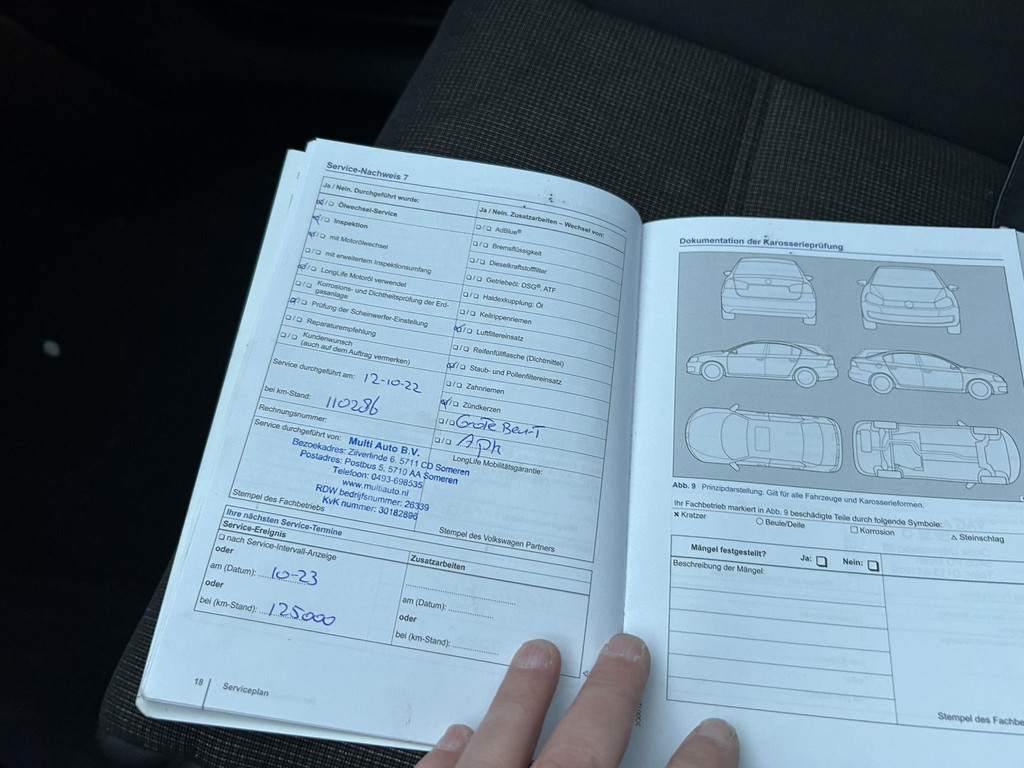 Service-Nachweis 7
Ja / Nein. Durchgeführt wurde:
☑/❏ Ölwechsel-Service
☑/❏ Inspektion
☑/❏ mit Motorölwechsel
❏/❏ mit erweitertem Inspektionsumfang
☑/❏ LongLife Motoröl verwendet
❏/❏ Korrosions- und Dichtheitsprüfung der Erd-
gasanlage
☑/❏ Prüfung der Scheinwerfer-Einstellung
❏/❏ Reparaturempfehlung
❏/❏ Kundenwunsch
(auch auf dem Auftrag vermerken)
Service durchgeführt am: 12-10-22
bei km-Stand: 110286
Rechnungsnummer:
Service durchgeführt von:
Multi Auto B.V.
Bezoekadres: Zilverlinde 6, 5711 CD Someren
Postadres: Postbus 5, 5710 AA Someren
Telefoon: 0493-698535
www.multiauto.nl
RDW bedrijfsnummer: 26339
KvK nummer: 30182896
Stempel des Fachbetriebs
Ja / Nein. Zusatzarbeiten – Wechsel von:
❏/❏ AdBlue®
❏/❏ Bremsflüssigkeit
❏/❏ Dieselkraftstofffilter
❏/❏ Getriebeöl: DSG®, ATF
❏/❏ Haldexkupplung: Öl
❏/❏ Keilrippenriemen
☑/❏ Luftfiltereinsatz
❏/❏ Reifenfüllflasche (Dichtmittel)
☑/❏ Staub- und Pollenfiltereinsatz
❏/❏ Zahnriemen
☑/❏ Zündkerzen
❏/❏ Grote Beurt
❏/❏ Apk
LongLife Mobilitätsgarantie:
Stempel des Volkswagen Partners
Ihre nächsten Service-Termine
Service-Ereignis
❏ nach Service-Intervall-Anzeige
oder
am (Datum): 10-23
oder
bei (km-Stand): 125000
Zusatzarbeiten
am (Datum):
oder
bei (km-Stand):
18 Serviceplan
Dokumentation der Karosserieprüfung
Abb. 9 Prinzipdarstellung. Gilt für alle Fahrzeuge und Karosserieformen.
Ihr Fachbetrieb markiert in Abb. 9 beschädigte Teile durch folgende Symbole:
✕ Kratzer ○ Beule/Delle □ Korrosion △ Steinschlag
Mängel festgestellt? Ja: ❏ Nein: ❏
Beschreibung der Mängel:
Stempel des Fachbe